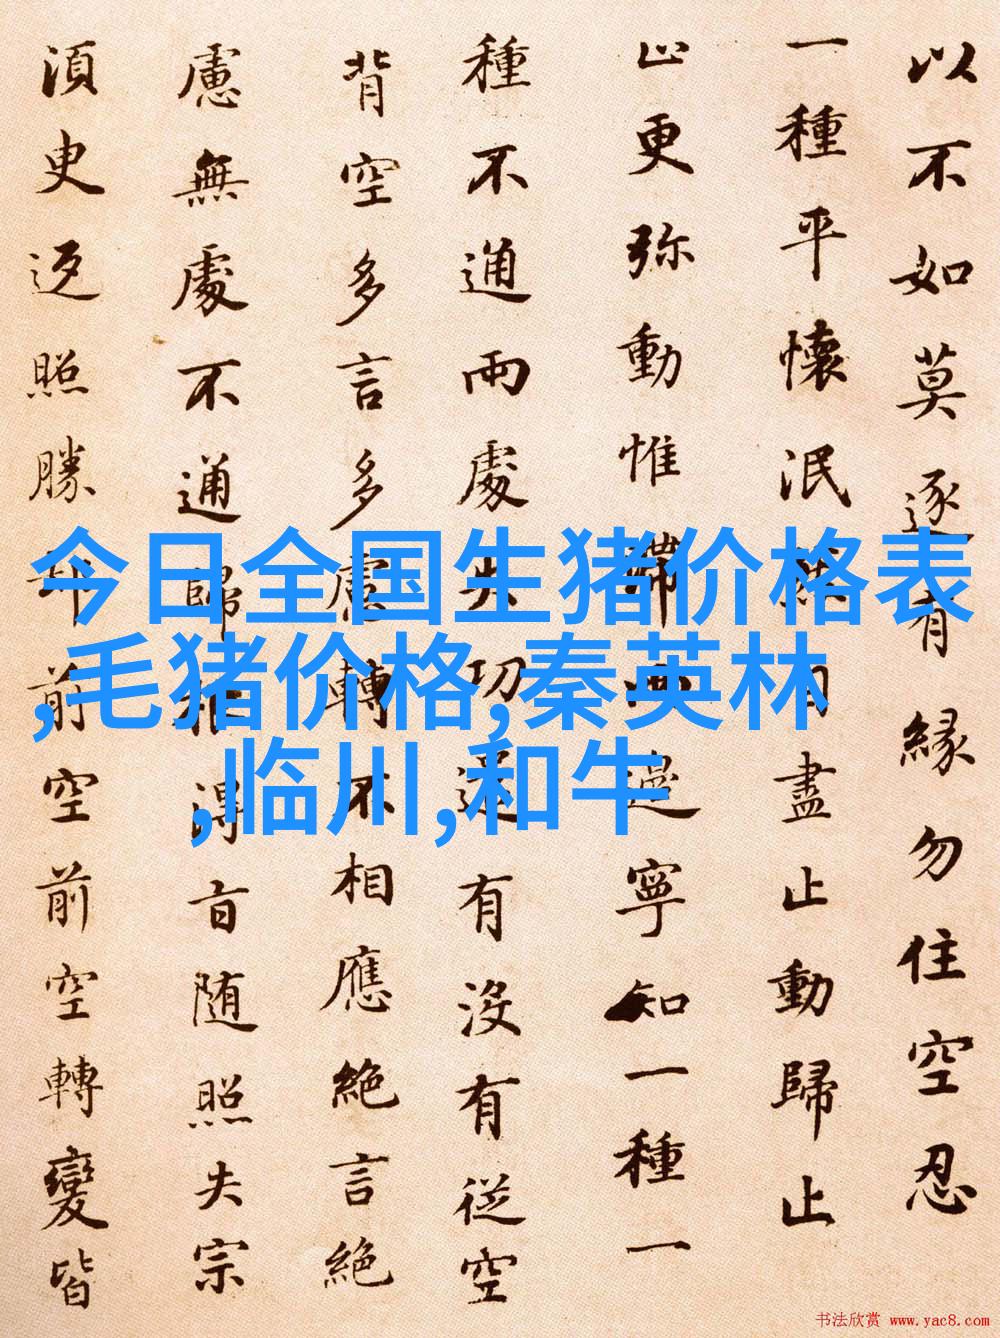 以不如莫逐有緣勿住空忍
一種平懷泯然自盡止動歸止
止更弥動惟滯兩邊寧知一種一
種不通兩處失功遣有没有從空
背空多言多慮轉不相應絕言絕
慮無處不通歸根得旨随照失宗
湏臾返照勝却前空前空轉變皆
今日全国生猪价格表
,毛猪价格,秦英林
,临川,和牛
书法欣赏 www.yac8.com